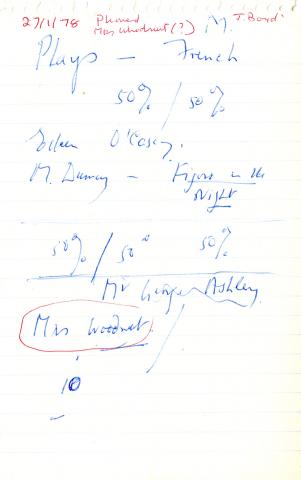 27/1/78 Phoned M. J. Bond
Mrs Woodnut(?)
Plays — French
50% / 50%
Eileen O'Casey.
M. — Figuro in the
Night
50% / 50% 50%
Mr George Ashley
Mrs Woodnut
10